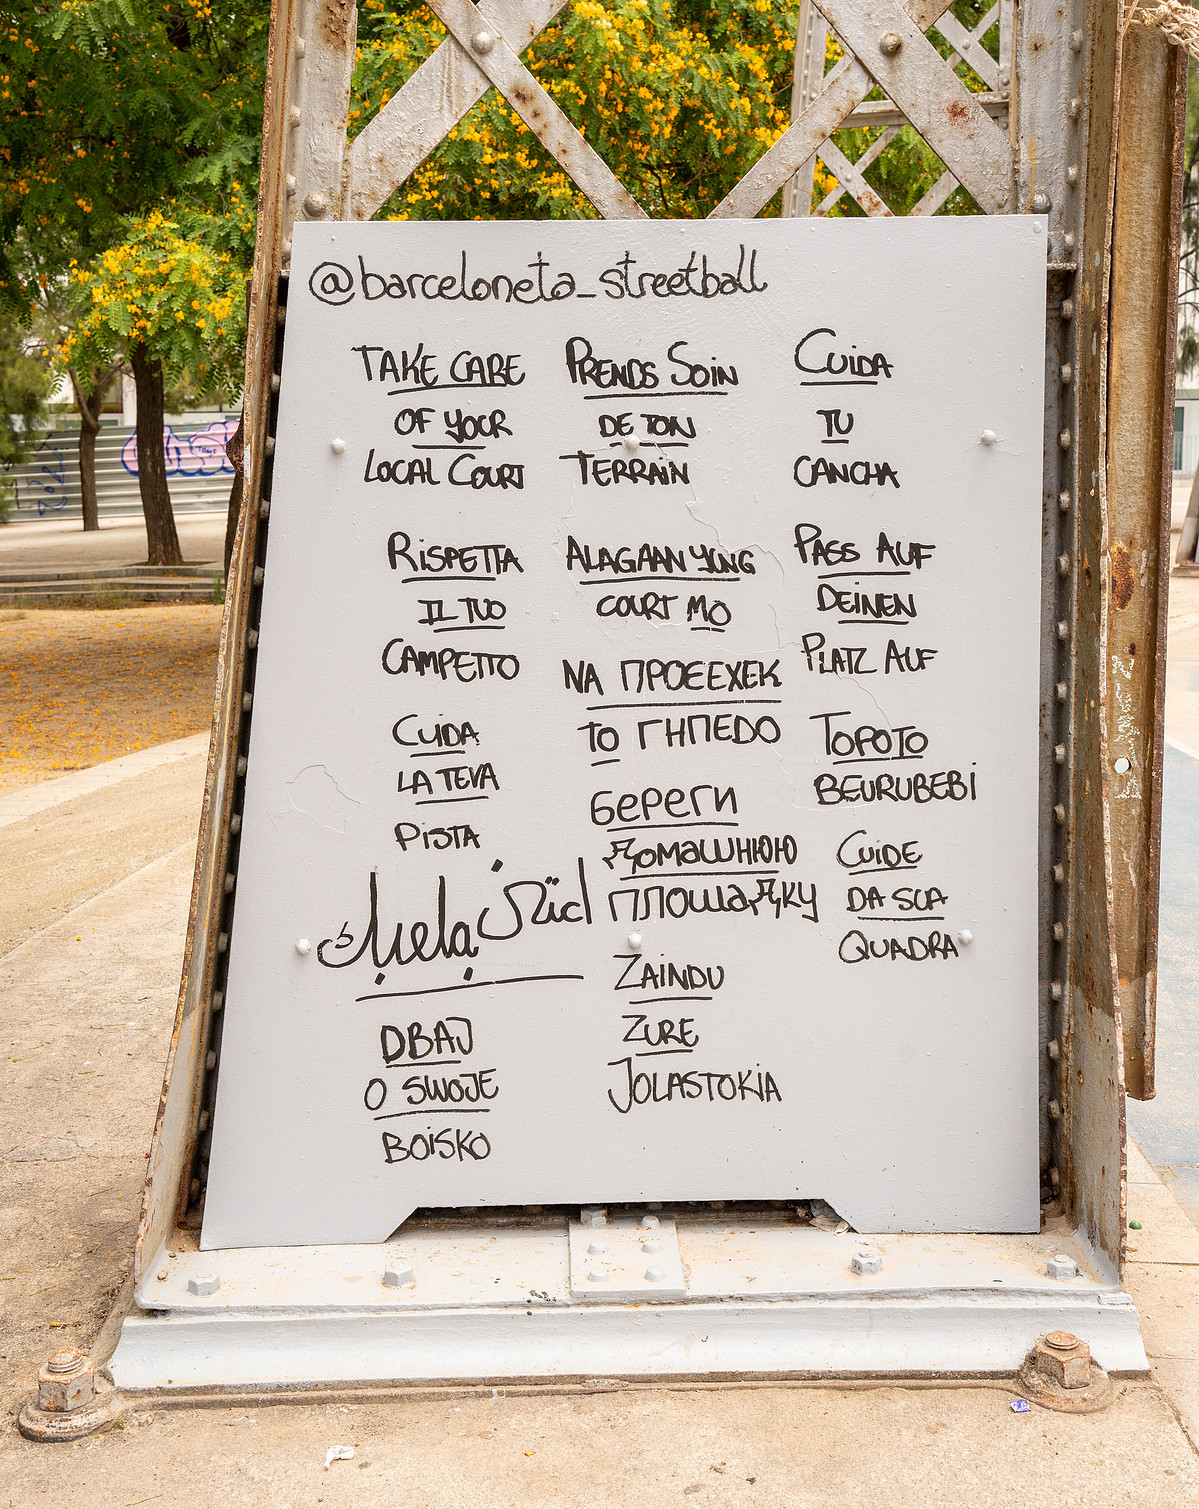 @barceloneta_streetball
TAKE CARE
OF YOUR
LOCAL COURT
PRENDS SOIN
DE TON
TERRAIN
CUIDA
TU
CANCHA
RISPETTA
IL TUO
CAMPETTO
ALAGAAN YUNG
COURT MO
PASS AUF
DEINEN
PLATZ AUF
CUIDA
LA TEVA
PISTA
ΝΑ ΠΡΟΕΕΧΕΚ
ΤΟ ΓΗΠΕDΟ
TOPOTO
BEURUBEBI
береги
домашнюю
плошадку
CUIDE
DA SUA
QUADRA
DBAJ
O SWOJE
BOISKO
ZAINDU
ZURE
JOLASTOKIA